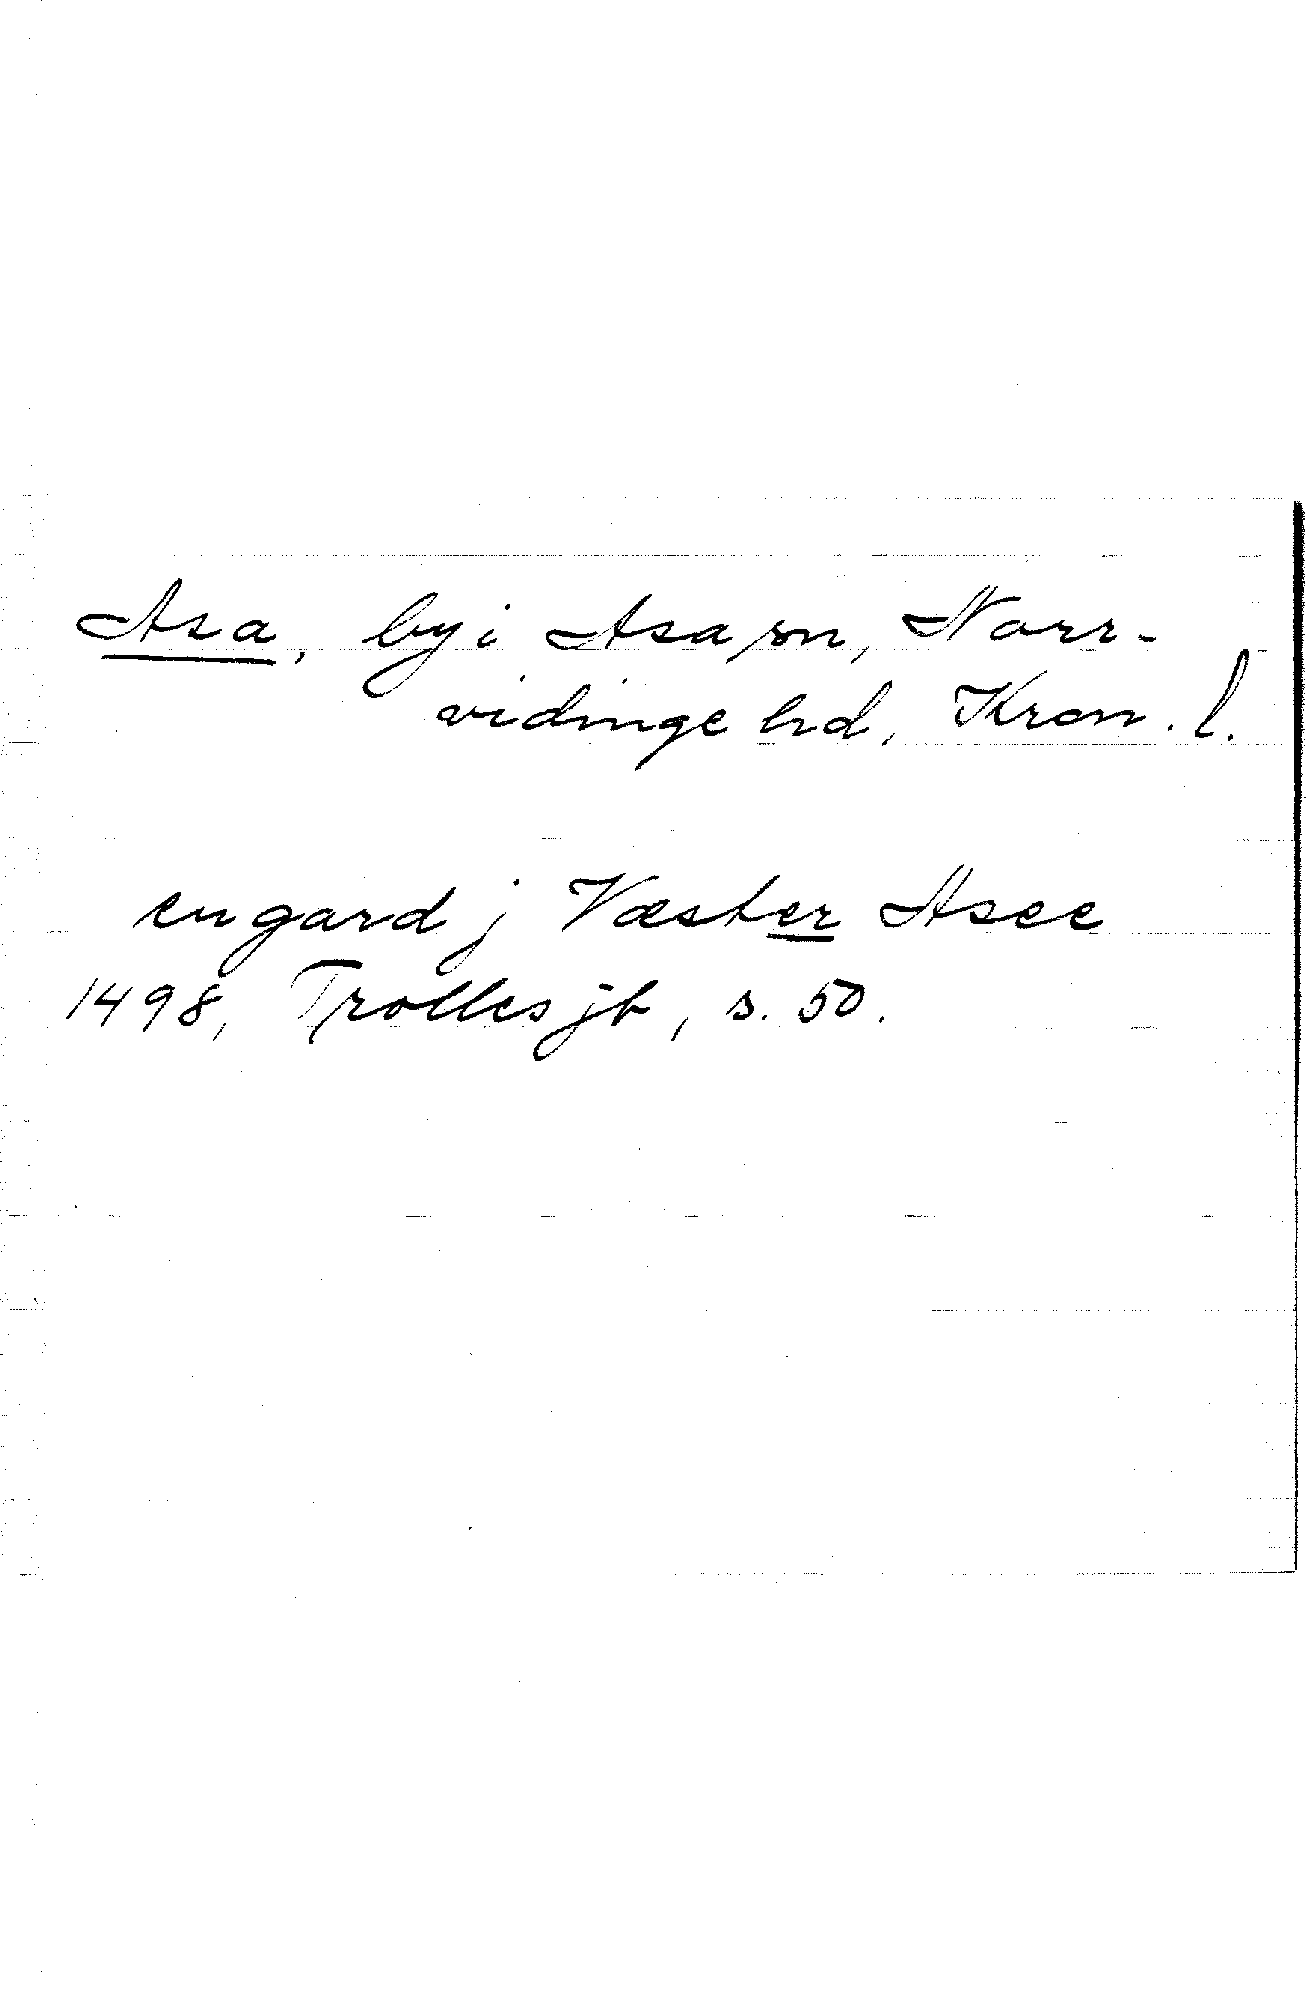 Asa, by i Asa sn, Norr-
vidinge hd, Kron. l.
en gard j Væster Asee
1498, Trolles jb, s. 50.